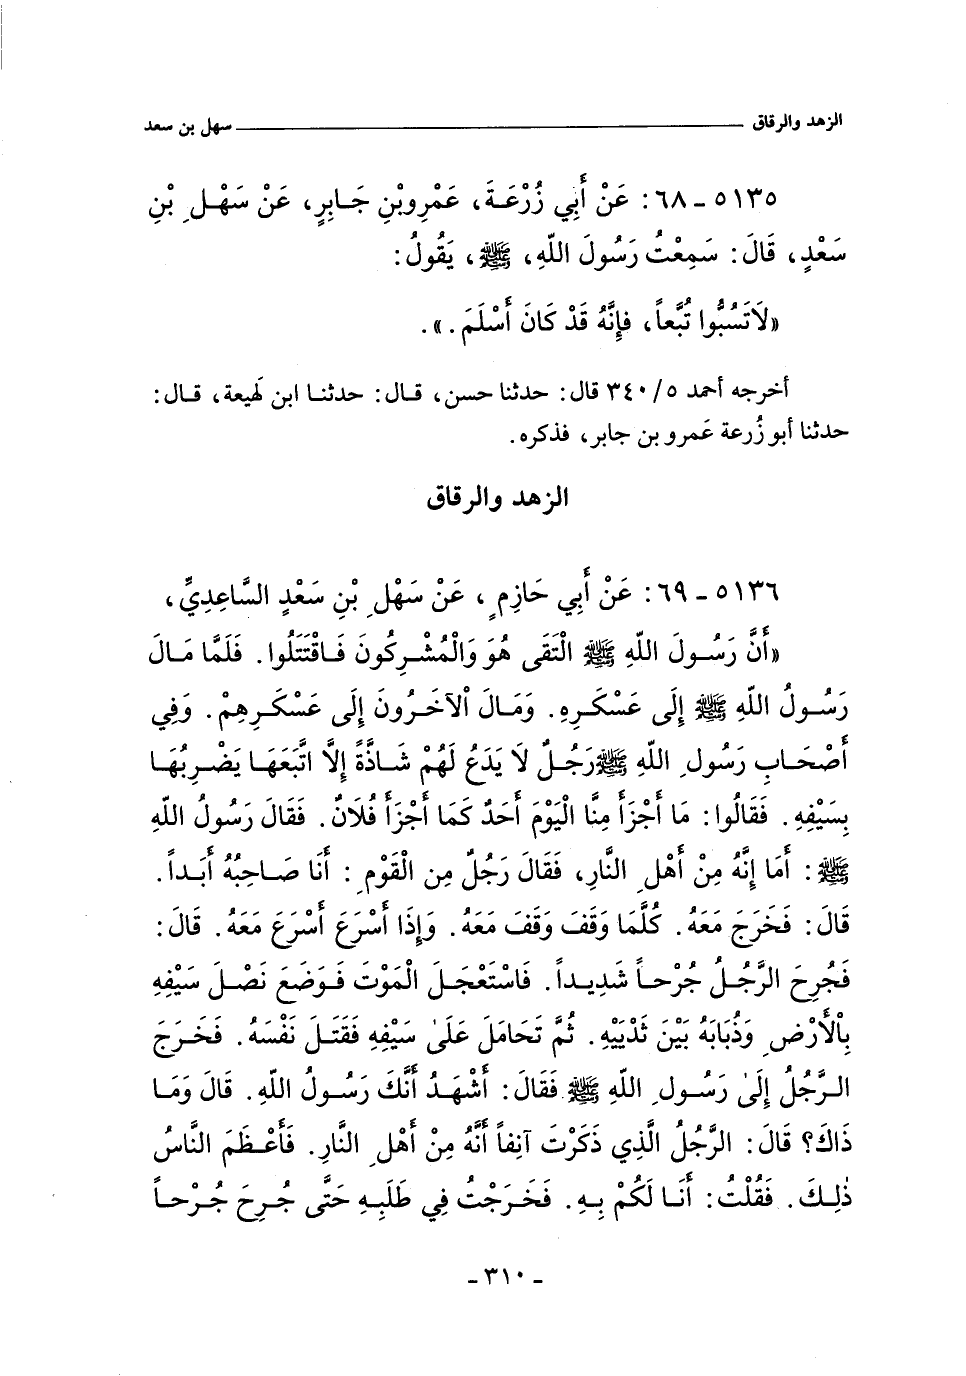 الزهد والرقاق ــــــــــــــــــــــــــــــــــــــــــــــــ سهل بن سعد
٥١٣٥ - ٦٨: عَنْ أَبِي زُرْعَةَ، عَمْرِوبْنِ جَابِرٍ، عَنْ سَهْلِ بْنِ
سَعْدٍ، قَالَ: سَمِعْتُ رَسُولَ اللّهِ، ﷺ، يَقُولُ:
«لَاتَسُبُّوا تُبَّعاً، فَإِنَّهُ قَدْ كَانَ أَسْلَمَ.».
أخرجه أحمد ٥/ ٣٤٠ قال: حدثنا حسن، قال: حدثنا ابن لَهيعة، قال:
حدثنا أبو زُرعة عَمرو بن جابر، فذكره.
الزهد والرقاق
٥١٣٦ - ٦٩: عَنْ أَبِي حَازِمٍ، عَنْ سَهْلِ بْنِ سَعْدٍ السَّاعِدِيِّ،
«أَنَّ رَسُولَ اللّهِ ﷺ الْتَقَى هُوَ وَالْمُشْرِكُونَ فَاقْتَتَلُوا. فَلَمَّا مَالَ
رَسُولُ اللّهِ ﷺ إِلَى عَسْكَرِهِ. وَمَالَ الْآخَرُونَ إِلَى عَسْكَرِهِمْ. وَفِي
أَصْحَابِ رَسُولِ اللّهِ ﷺ رَجُلٌ لَا يَدَعُ لَهُمْ شَاذَّةً إِلَّا اتَّبَعَهَا يَضْرِبُهَا
بِسَيْفِهِ. فَقَالُوا: مَا أَجْزَأَ مِنَّا الْيَوْمَ أَحَدٌ كَمَا أَجْزَأَ فُلَانٌ. فَقَالَ رَسُولُ اللّهِ
ﷺ: أَمَا إِنَّهُ مِنْ أَهْلِ النَّارِ، فَقَالَ رَجُلٌ مِنَ الْقَوْمِ: أَنَا صَاحِبُهُ أَبَداً.
قَالَ: فَخَرَجَ مَعَهُ. كُلَّمَا وَقَفَ وَقَفَ مَعَهُ. وَإِذَا أَسْرَعَ أَسْرَعَ مَعَهُ. قَالَ:
فَجُرِحَ الرَّجُلُ جُرْحاً شَدِيداً. فَاسْتَعْجَلَ الْمَوْتَ فَوَضَعَ نَصْلَ سَيْفِهِ
بِالْأَرْضِ وَذُبَابَهُ بَيْنَ ثَدْيَيْهِ. ثُمَّ تَحَامَلَ عَلَىٰ سَيْفِهِ فَقَتَلَ نَفْسَهُ. فَخَرَجَ
الرَّجُلُ إِلَىٰ رَسُولِ اللّهِ ﷺ فَقَالَ: أَشْهَدُ أَنَّكَ رَسُولُ اللّهِ. قَالَ وَمَا
ذَاكَ؟ قَالَ: الرَّجُلُ الَّذِي ذَكَرْتَ آنِفاً أَنَّهُ مِنْ أَهْلِ النَّارِ. فَأَعْظَمَ النَّاسُ
ذٰلِكَ. فَقُلْتُ: أَنَا لَكُمْ بِهِ. فَخَرَجْتُ فِي طَلَبِهِ حَتَّى جُرِحَ جُرْحاً
- ٣١٠ -